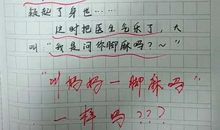 疑起了身世……
这时把医生气乐了，大
叫“我是问你脚麻吗？~”
“叫妈妈一脚麻吗”
一样吗？？？